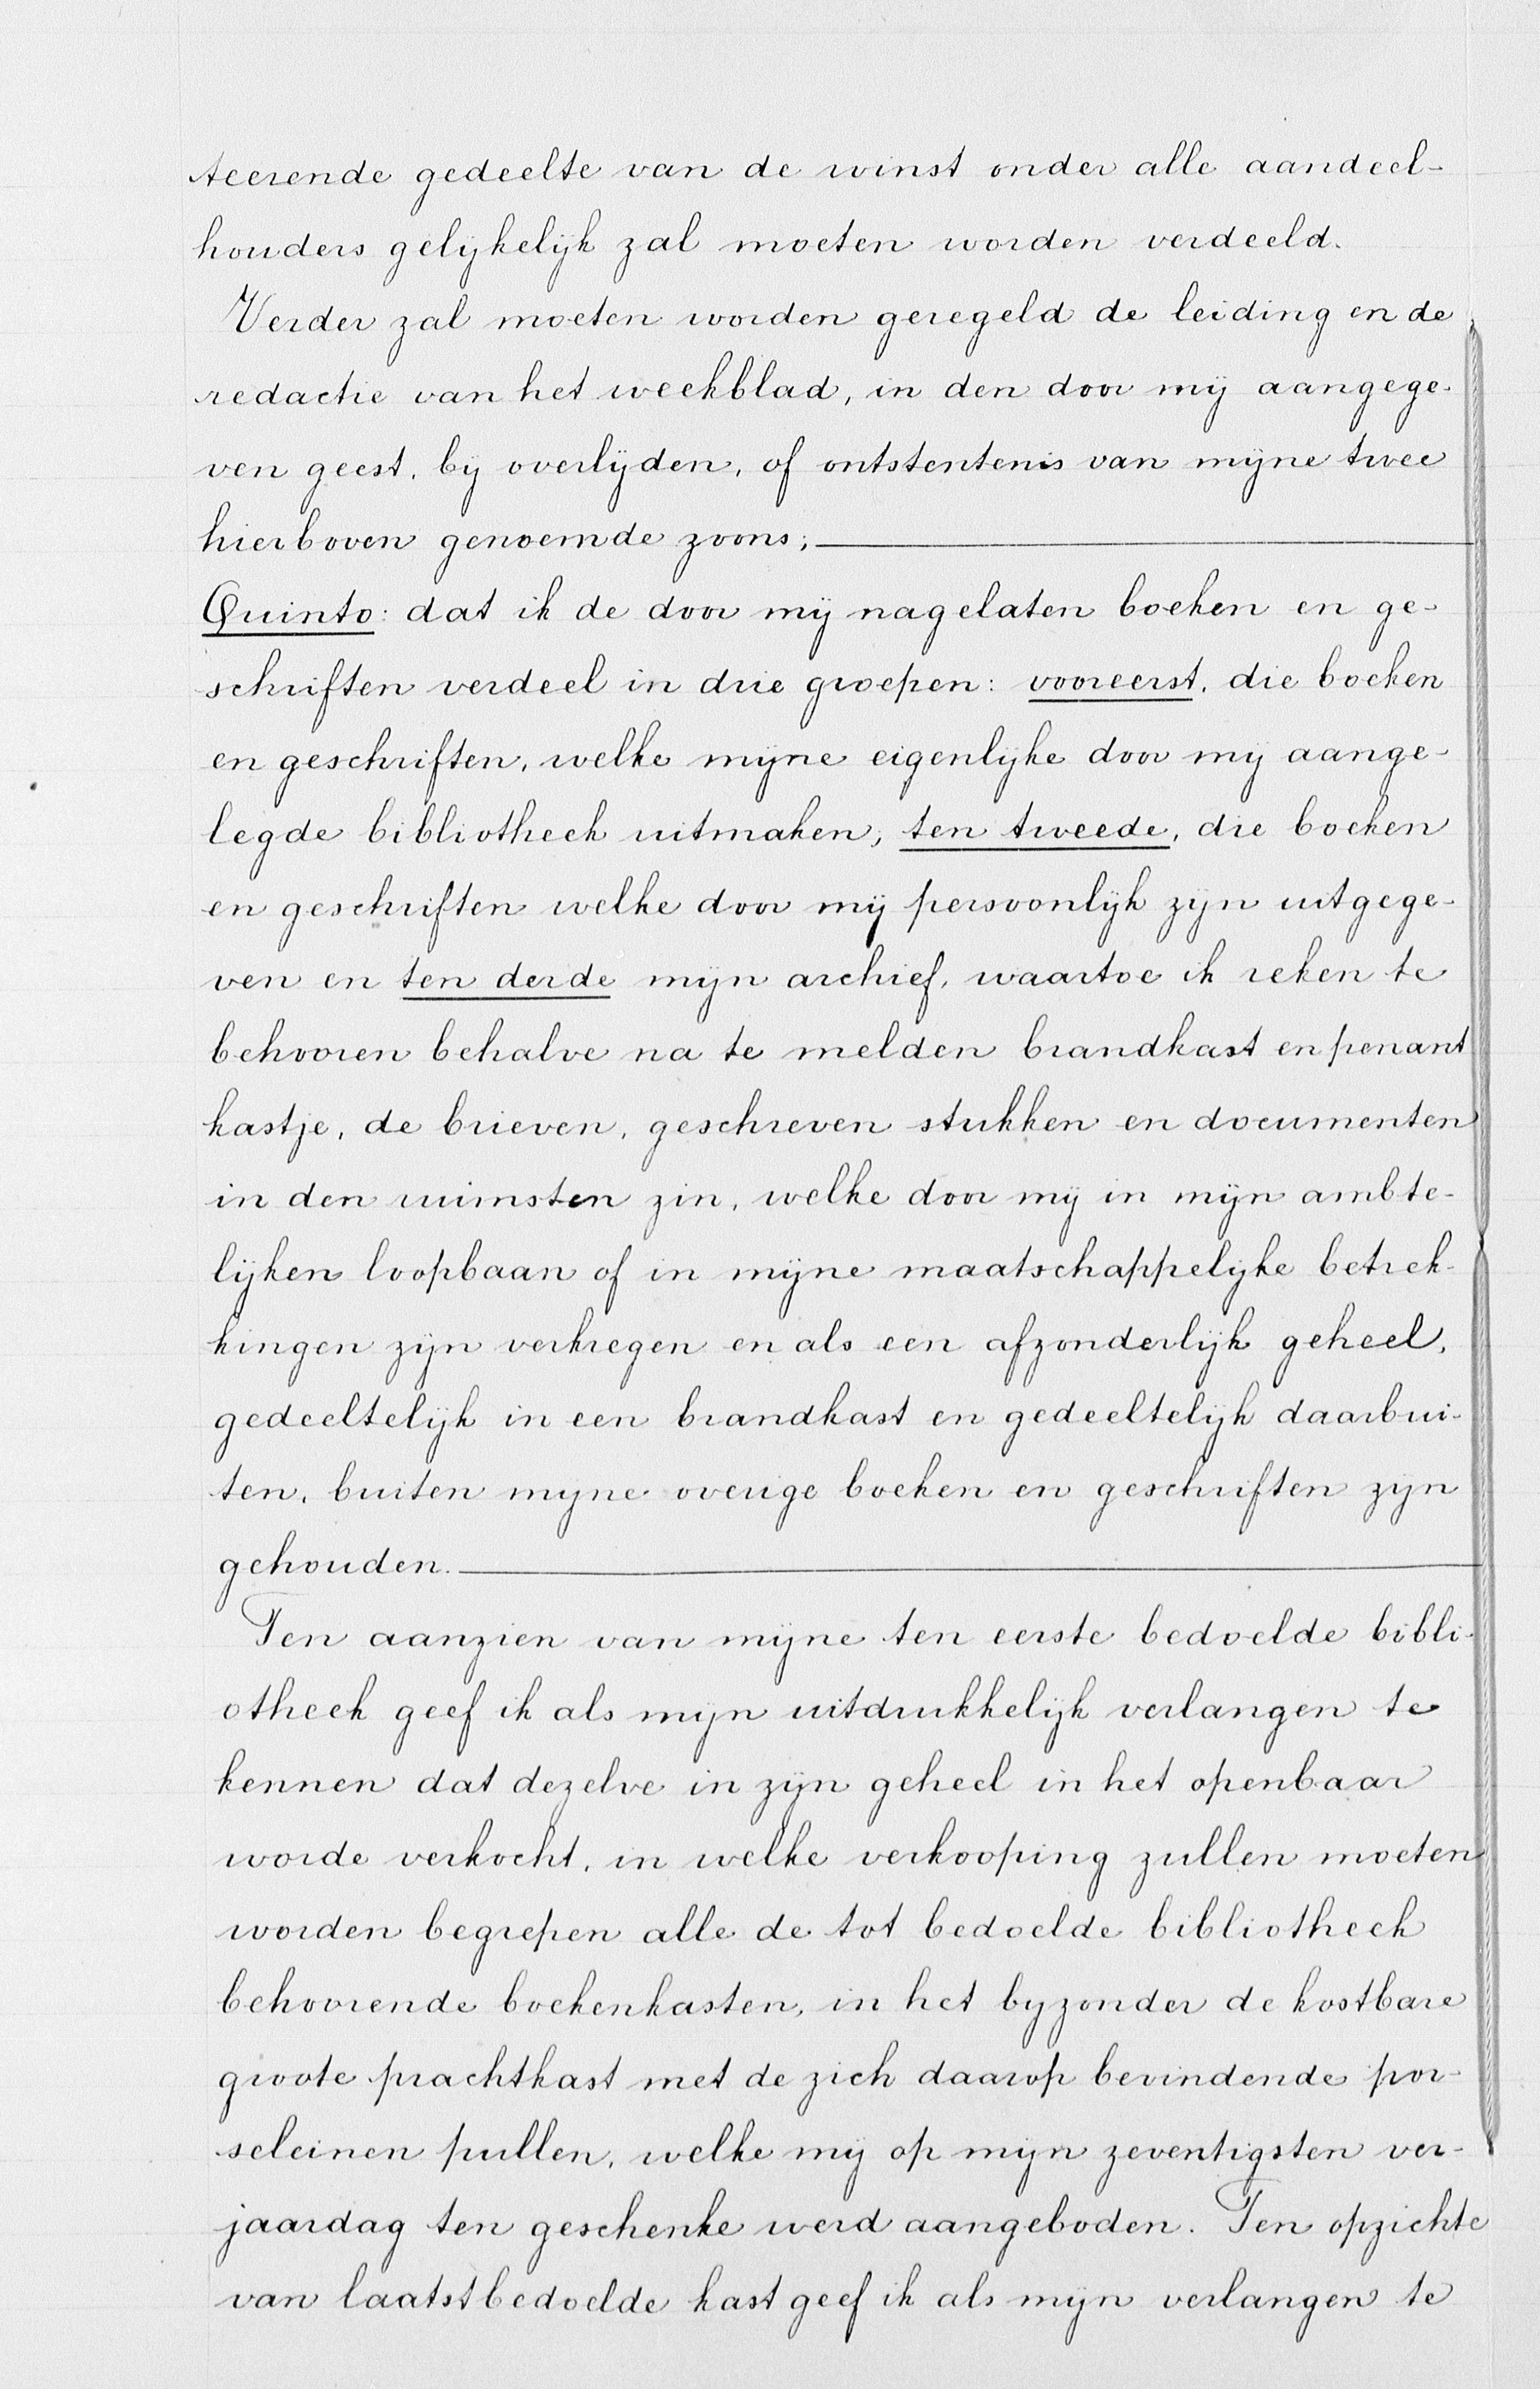 teerende gedeelte van de winst onder alle aandeel-
houders gelijkelijk zal moeten worden verdeeld.
Verder zal moeten worden geregeld de leiding en de
redactie van het weekblad, in den door mij aangege-
ven geest, bij overlijden, of ontstentenis van mijne twee
hierboven genoemde zoons;
Quinto: dat ik de door mij nagelaten boeken en ge-
schriften verdeel in drie groepen: vooreerst, die boeken
en geschriften, welke mijne eigenlijke door mij aange-
legde bibliotheek uitmaken, ten tweede, die boeken
en geschriften welke door mij persoonlijk zijn uitgege-
ven en ten derde mijn archief, waartoe ik reken te
behooren behalve na te melden brandkast en penant
kastje, de brieven, geschreven stukken en documenten
in den ruimsten zin, welke door mij in mijn ambte-
lijken loopbaan of in mijne maatschappelijke betrek-
kingen zijn verkregen en als een afzonderlijk geheel,
gedeeltelijk in een brandkast en gedeeltelijk daarbui-
ten, buiten mijne overige boeken en geschriften zijn
gehouden.
Ten aanzien van mijne ten eerste bedoelde bibli-
otheek geef ik als mijn uitdrukkelijk verlangen te
kennen dat dezelve in zijn geheel in het openbaar
worde verkocht, in welke verkooping zullen moeten
worden begrepen alle de tot bedoelde bibliotheek
behoorende boekenkasten, in het bijzonder de kostbare
groote prachtkast met de zich daarop bevindende por-
seleinen pullen, welke mij op mijn zeventigsten ver-
jaardag ten geschenke werd aangeboden. Ten opzichte
van laatstbedoelde kast geef ik als mijn verlangen te